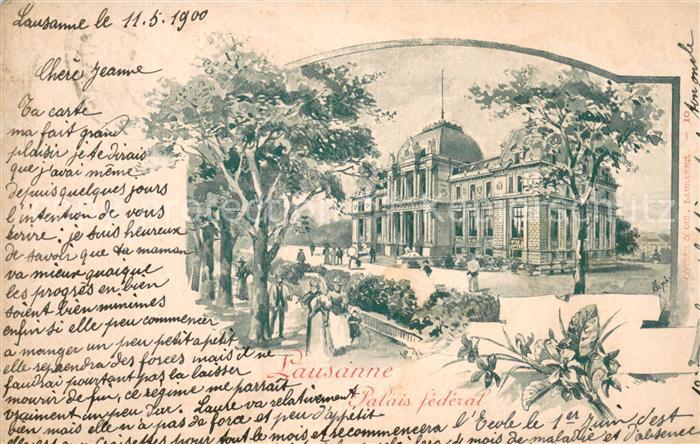 Lausanne le 11.5.1900
Chère Jeanne
Ta carte
ma fait grand
plaisir je te dirais
que j'avai même
depuis quelques jours
l'intention de vous
écrire: je suis heureux
de savoir que ta maman
va mieux quoique
les progrès en bien
soient bien minimes
enfin si elle peu commencer
a manger un peu petit a petit
elle reprendra des forces mais il ne
faudrai pourtant pas la laisser
mourir de fin, ce régime me parrait
vraiment un peu dur. Laure va relativement
bien mais elle n'a pas de force et peu d'appétit
pour tout le mois et recommencera l'Ecole le 1er Juin, c'est
mois de maladie et d'absence
Lausanne
Palais fédéral
mon oncle